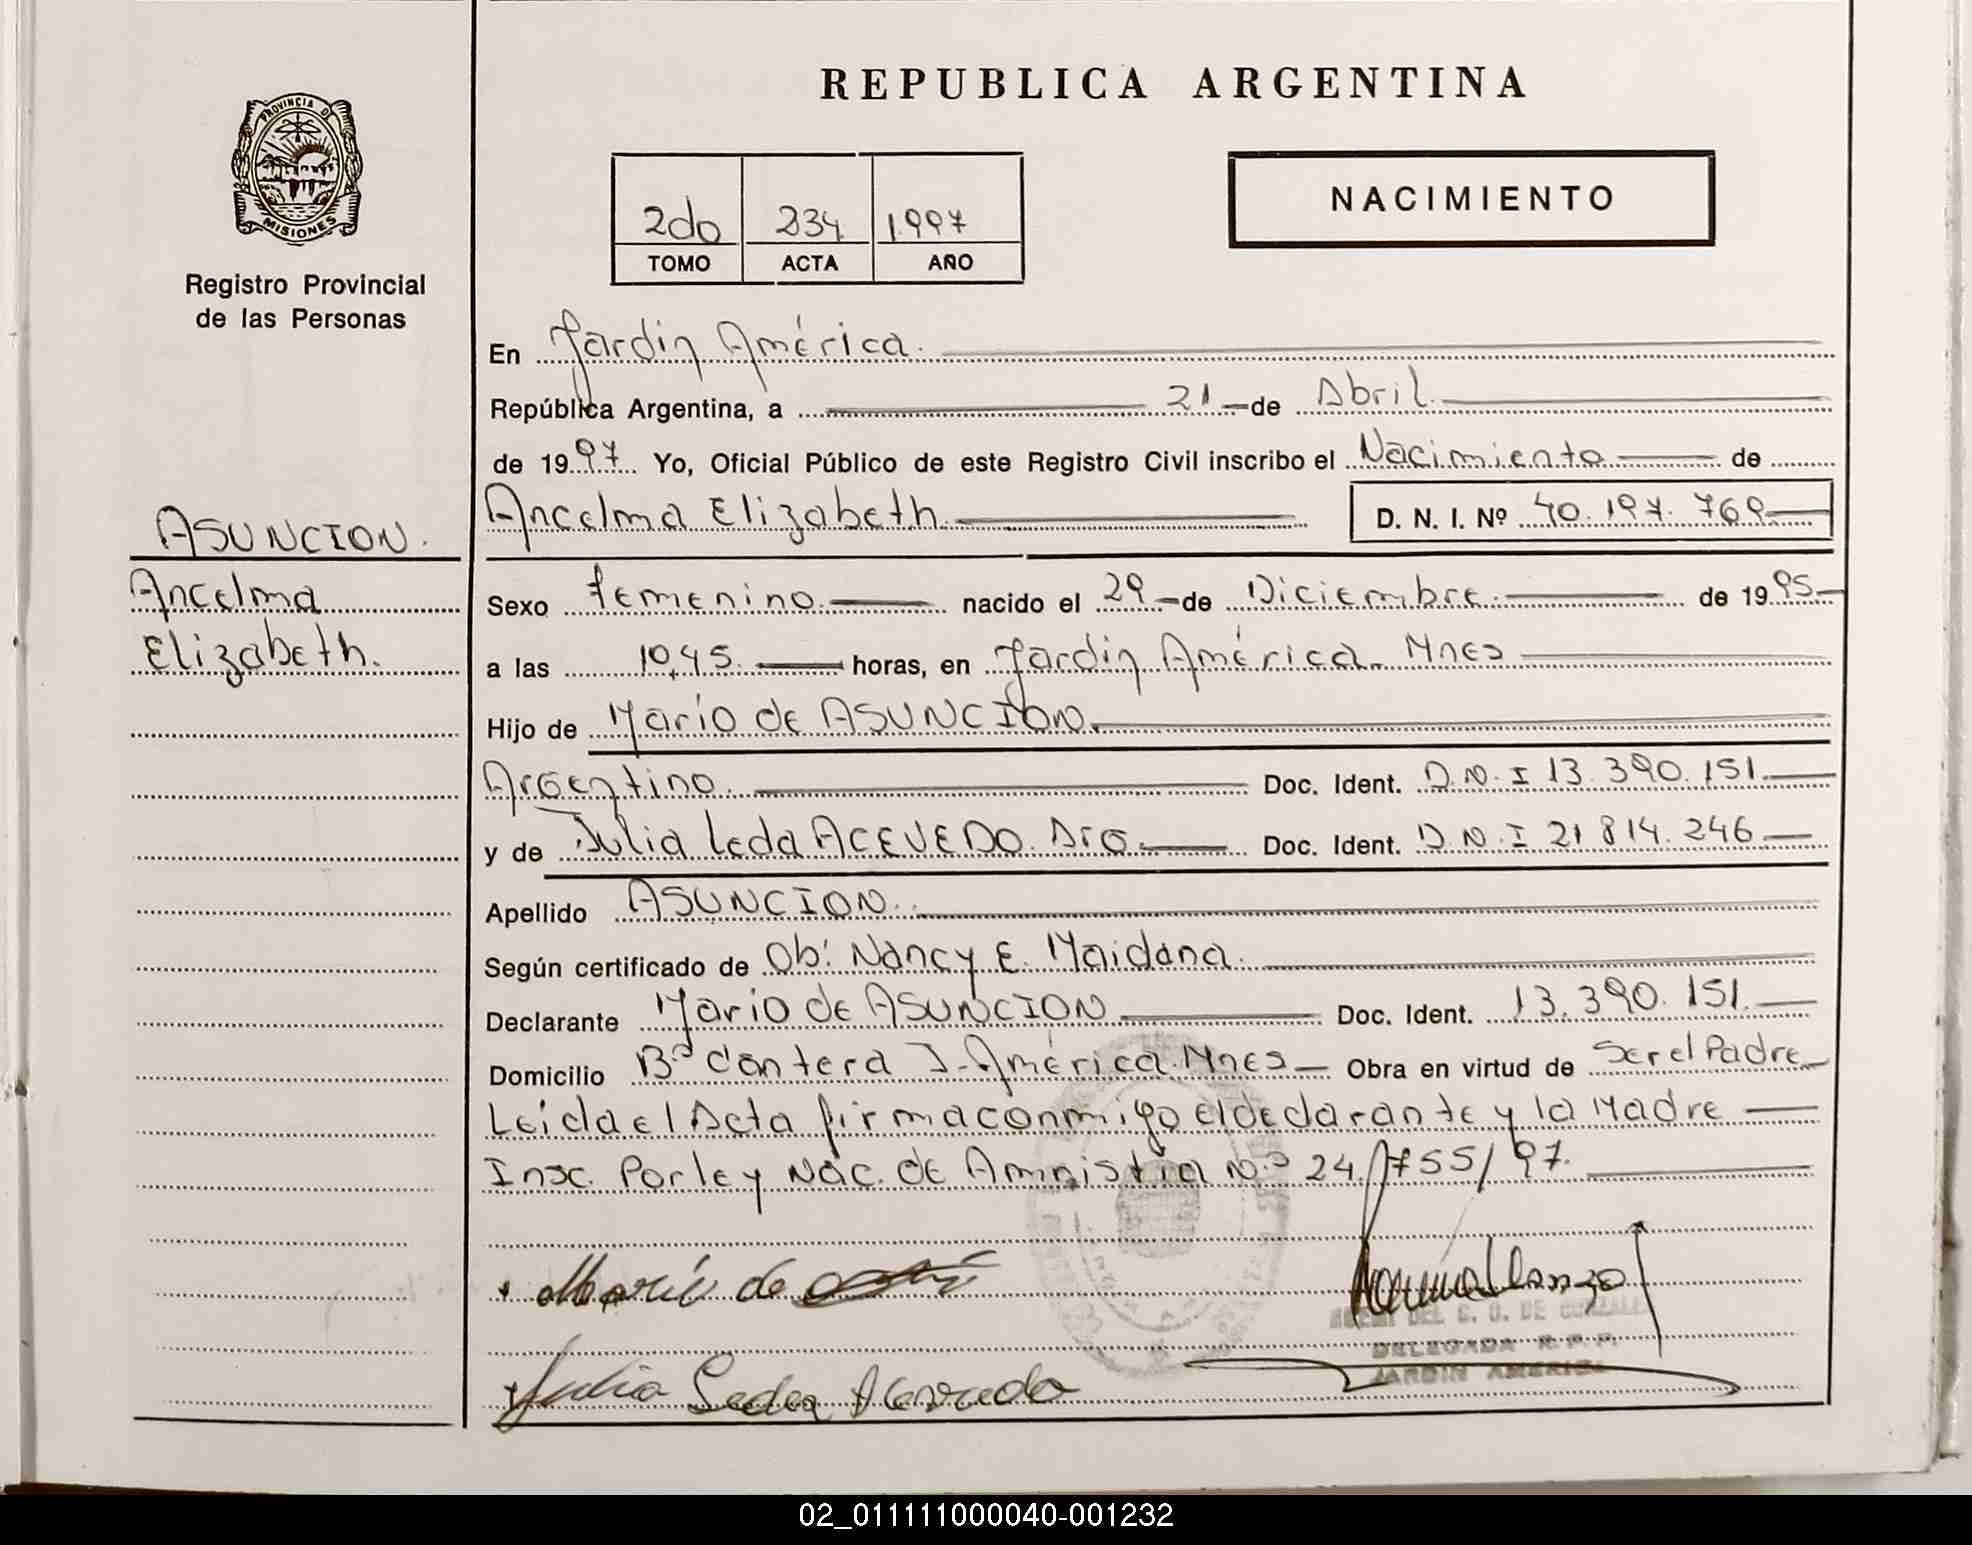 REPUBLICA ARGENTINA
PROVINCIA DE
MISIONES
Registro Provincial
de las Personas
2do 234 1.997
TOMO ACTA AÑO
NACIMIENTO
En Jardin América.
República Argentina, a 21 de Abril
de 1997 Yo, Oficial Público de este Registro Civil inscribo el Nacimiento de
Ancelma Elizabeth. D. N. I. Nº 40.197.769
ASUNCION.
Ancelma
Elizabeth.
Sexo femenino. nacido el 29 de Diciembre. de 1995
a las 10,45. horas, en Jardin América. Mnes
Hijo de Mario de ASUNCION.
Argentino. Doc. Ident. D.N.I 13.390.151.
y de Julia Leda ACEVEDO. Arg. Doc. Ident. D.N.I 21 814.246
Apellido ASUNCION.
Según certificado de Ob: Nancy E. Maidana.
Declarante Mario de ASUNCION Doc. Ident. 13.390.151.
Domicilio Bº Cantera J. América. Mnes Obra en virtud de Ser el Padre
Leida el Acta firma conmigo el declarante y la Madre
Insc. Por ley Nac. de Amnistia N.º 24.755/97.
Mario de
Julia Leda Acevedo
DEL C. G. DE GONZALE
DELEGADA R. P. P.
JARDIN AMERICA
02_011111000040-001232